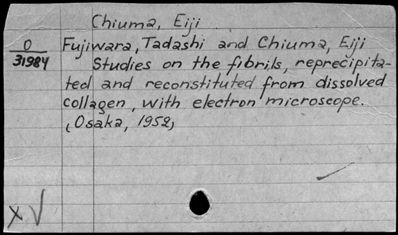 Chiuma, Eiji
O
31984
Fujiwara, Tadashi and Chiuma, Eiji
Studies on the fibrils, reprecipita-
ted and reconstituted from dissolved
collagen, with electron microscope.
(Osaka, 1952)
X √